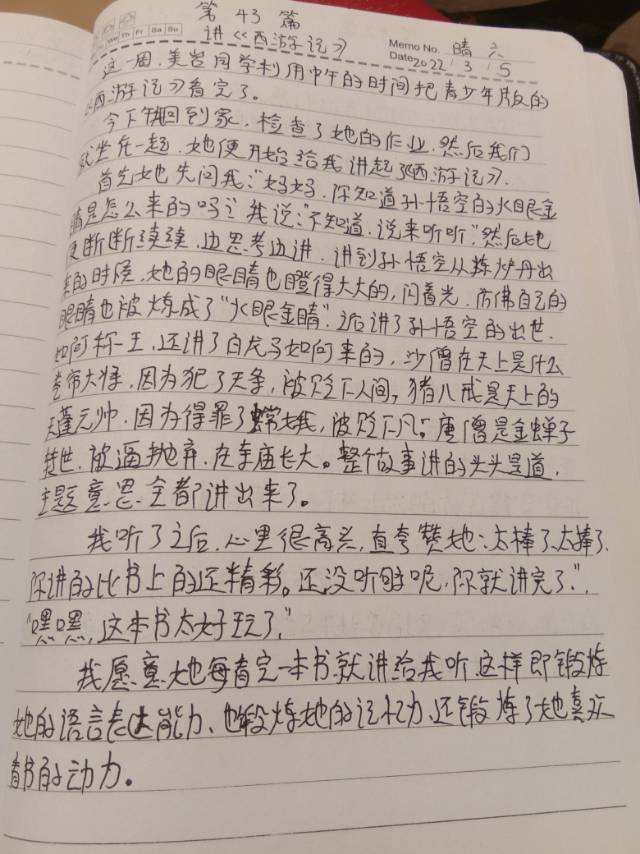 第 43 篇
讲《西游记》
Th Fr Sa Su
Memo No. 晴 六
Date 2022 / 3 / 5
这一周,美岂同学利用中午的时间把青少年版的
《西游记》看完了。
今下午回到家,检查了她的作业,然后我们
就坐在一起,她便开始给我讲起了《西游记》.
首先她先问我:“妈妈,你知道孙悟空的火眼金
睛是怎么来的吗?”我说:“不知道,说来听听”,然后她
便断断续续,边思考边讲,讲到孙悟空从炼炉丹出
来的时候,她的眼睛也瞪得大大的,闪着光,仿佛自己的
眼睛也被炼成了“火眼金睛”.之后讲了孙悟空的出世.
如何称王,还讲了白龙马如何来的,沙僧在天上是什么
卷帘大将,因为犯了天条,被贬下人间,猪八戒是天上的
天蓬元帅,因为得罪了嫦娥,被贬下凡;唐僧是金蝉子
转世,被逼抛弃,在寺庙长大。整个故事讲的头头是道,
主题意思全都讲出来了。
我听了之后,心里很高兴,直夸赞她:太棒了,太棒了,
你讲的比书上的还精彩。还没听够呢,你就讲完了.”,
“嘿嘿,这本书太好玩了,”
我愿意她每看完一本书就讲给我听,这样即锻炼
她的语言表达能力、也锻炼她的记忆力、还锻炼了她喜欢
看书的动力。